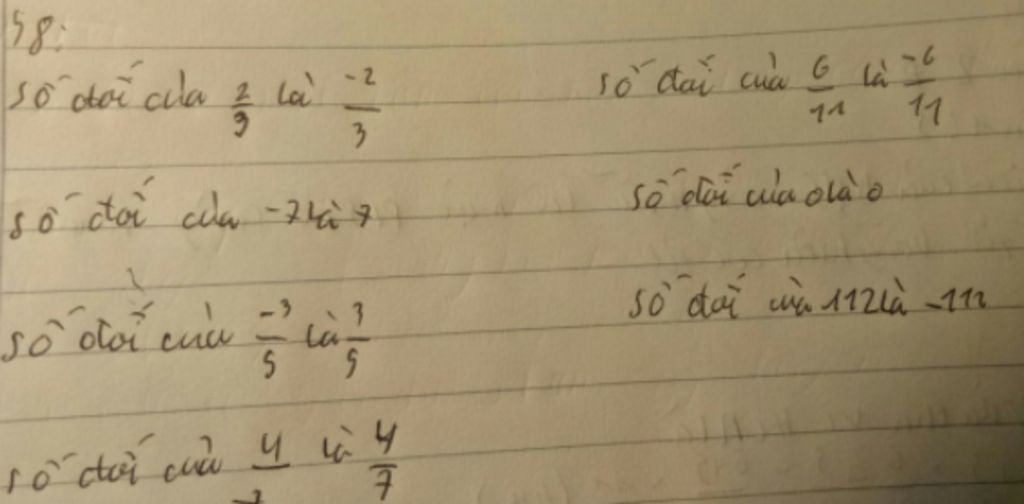 58:
số đối của 2/3 là -2/3
số đối của 6/11 là -6/11
số đối của -7 là 7
số đối của 0 là 0
số đối của -3/5 là 3/5
số đối của 112 là -112
số đối của 4/-7 là 4/7